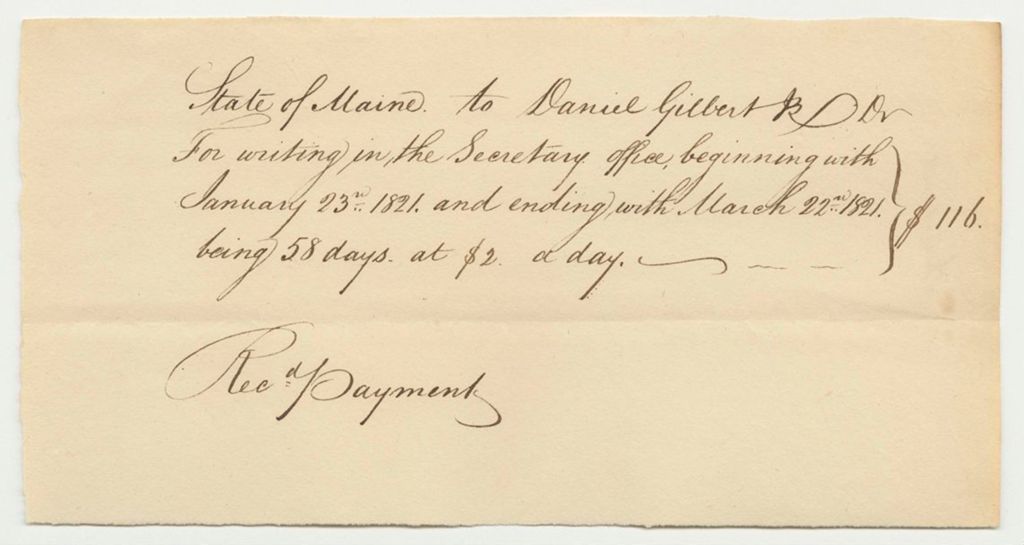 State of Maine. to Daniel Gilbert Dr
For writing in the Secretary office, beginning with
January 23rd 1821. and ending with March 22nd 1821. $ 116.
being 58 days. at $2. a day.
Recd Payment